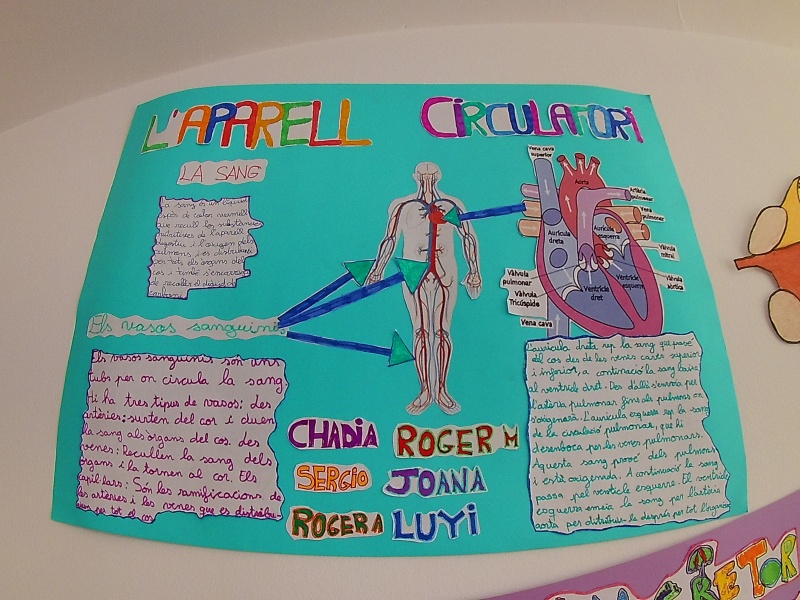 L'APARELL CIRCULATORI
LA SANG
La sang és un líquid
espès de color vermell
que recull les substàncies
nutritives de l'aparell
digestiu i l'oxigen dels
pulmons, i es distribueix
per tots els òrgans del
cos i també s'encarrega
de recollir el diòxid de
Els vasos sanguinis
Els vasos sanguinis són uns
tubs per on circula la sang.
Hi ha tres tipus de vasos: des
artèries: surten del cor i duen
la sang als òrgans del cos. des
venes: Recullen la sang dels
òrgans i la tornen al cor. Els
capil·lars: Són les ramificacions de
les artèries i les venes que es distribu-
eixen per tot el cos
CHADIA ROGER M
SERGIO JOANA
ROGER A LUYI
Vena cava
superior
Aorta
Artèria
pulmonar
Vena
pulmonar
Aurícula
dreta
Aurícula
esquerra
Vàlvula
mitral
Vàlvula
pulmonar
Vàlvula
Tricúspide
Ventricle
dret
Ventricle
esquerre
Vàlvula
Aòrtica
Vena cava
L'aurícula dreta rep la sang que
del cos des de les venes caves superior
i inferior, a continuació la sang baixa
al ventricle dret. Des d'allí s'envia per
l'artèria pulmonar fins als pulmons on
s'oxigenarà. L'aurícula esquerra rep la sang
de la circulació pulmonar, que hi
desenboca per les venes pulmonars.
Aquesta sang prové dels pulmons
i està oxigenada. A continuació la sang
passa pel ventricle esquerre. El ventricle
esquerre envia la sang per l'artèria
aorta per distribuir-la després per tot l'organisme
RETOR